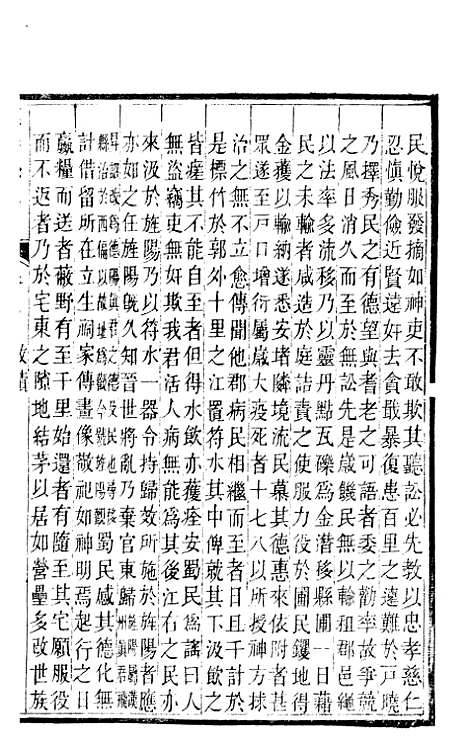 民悅服發摘如神吏不敢欺其聽訟必先教以忠孝慈仁
忍慎勤儉近賢遠奸去貪戢暴復患百里之遠難於戶曉
乃擇秀民之有德望與耆老之可語者委之勸率故爭競
之風日消久而至於無訟先是歲饑民無以輸租郡邑繩
以法率多流移乃以靈丹點瓦礫為金潛移縣圃一日藉
民之未輸者咸造於庭詰責之使服力役於圃民钁地得
金獲以輸納遂悉安堵隣境流民慕其德惠來依附者甚
眾遂至戶口增衍屬歲大疫死者十七八以所授神方拯
治之無不立愈傳聞他郡病民相繼而至者日且千計於
是標竹於郭外十里之江置符水其中俾就其下汲飲之
皆痊其不能自至者但得水飲亦獲痊安蜀民為謠曰人
無盜竊吏無奸欺我君活人病無能為其後江右之民亦
來汲於旌陽乃以符水一器令持歸效所施於旌陽者應
亦如之任旌陽旣久知晉世將亂乃棄官東歸
蜀民感其德化無
計借留所在立生祠家傳畫像敬祀如神明焉起行之日
贏糧而送者蔽野有至千里始還者有隨至其宅願服役
而不返者乃於宅東之隙地結茅以居如營壘多改世族